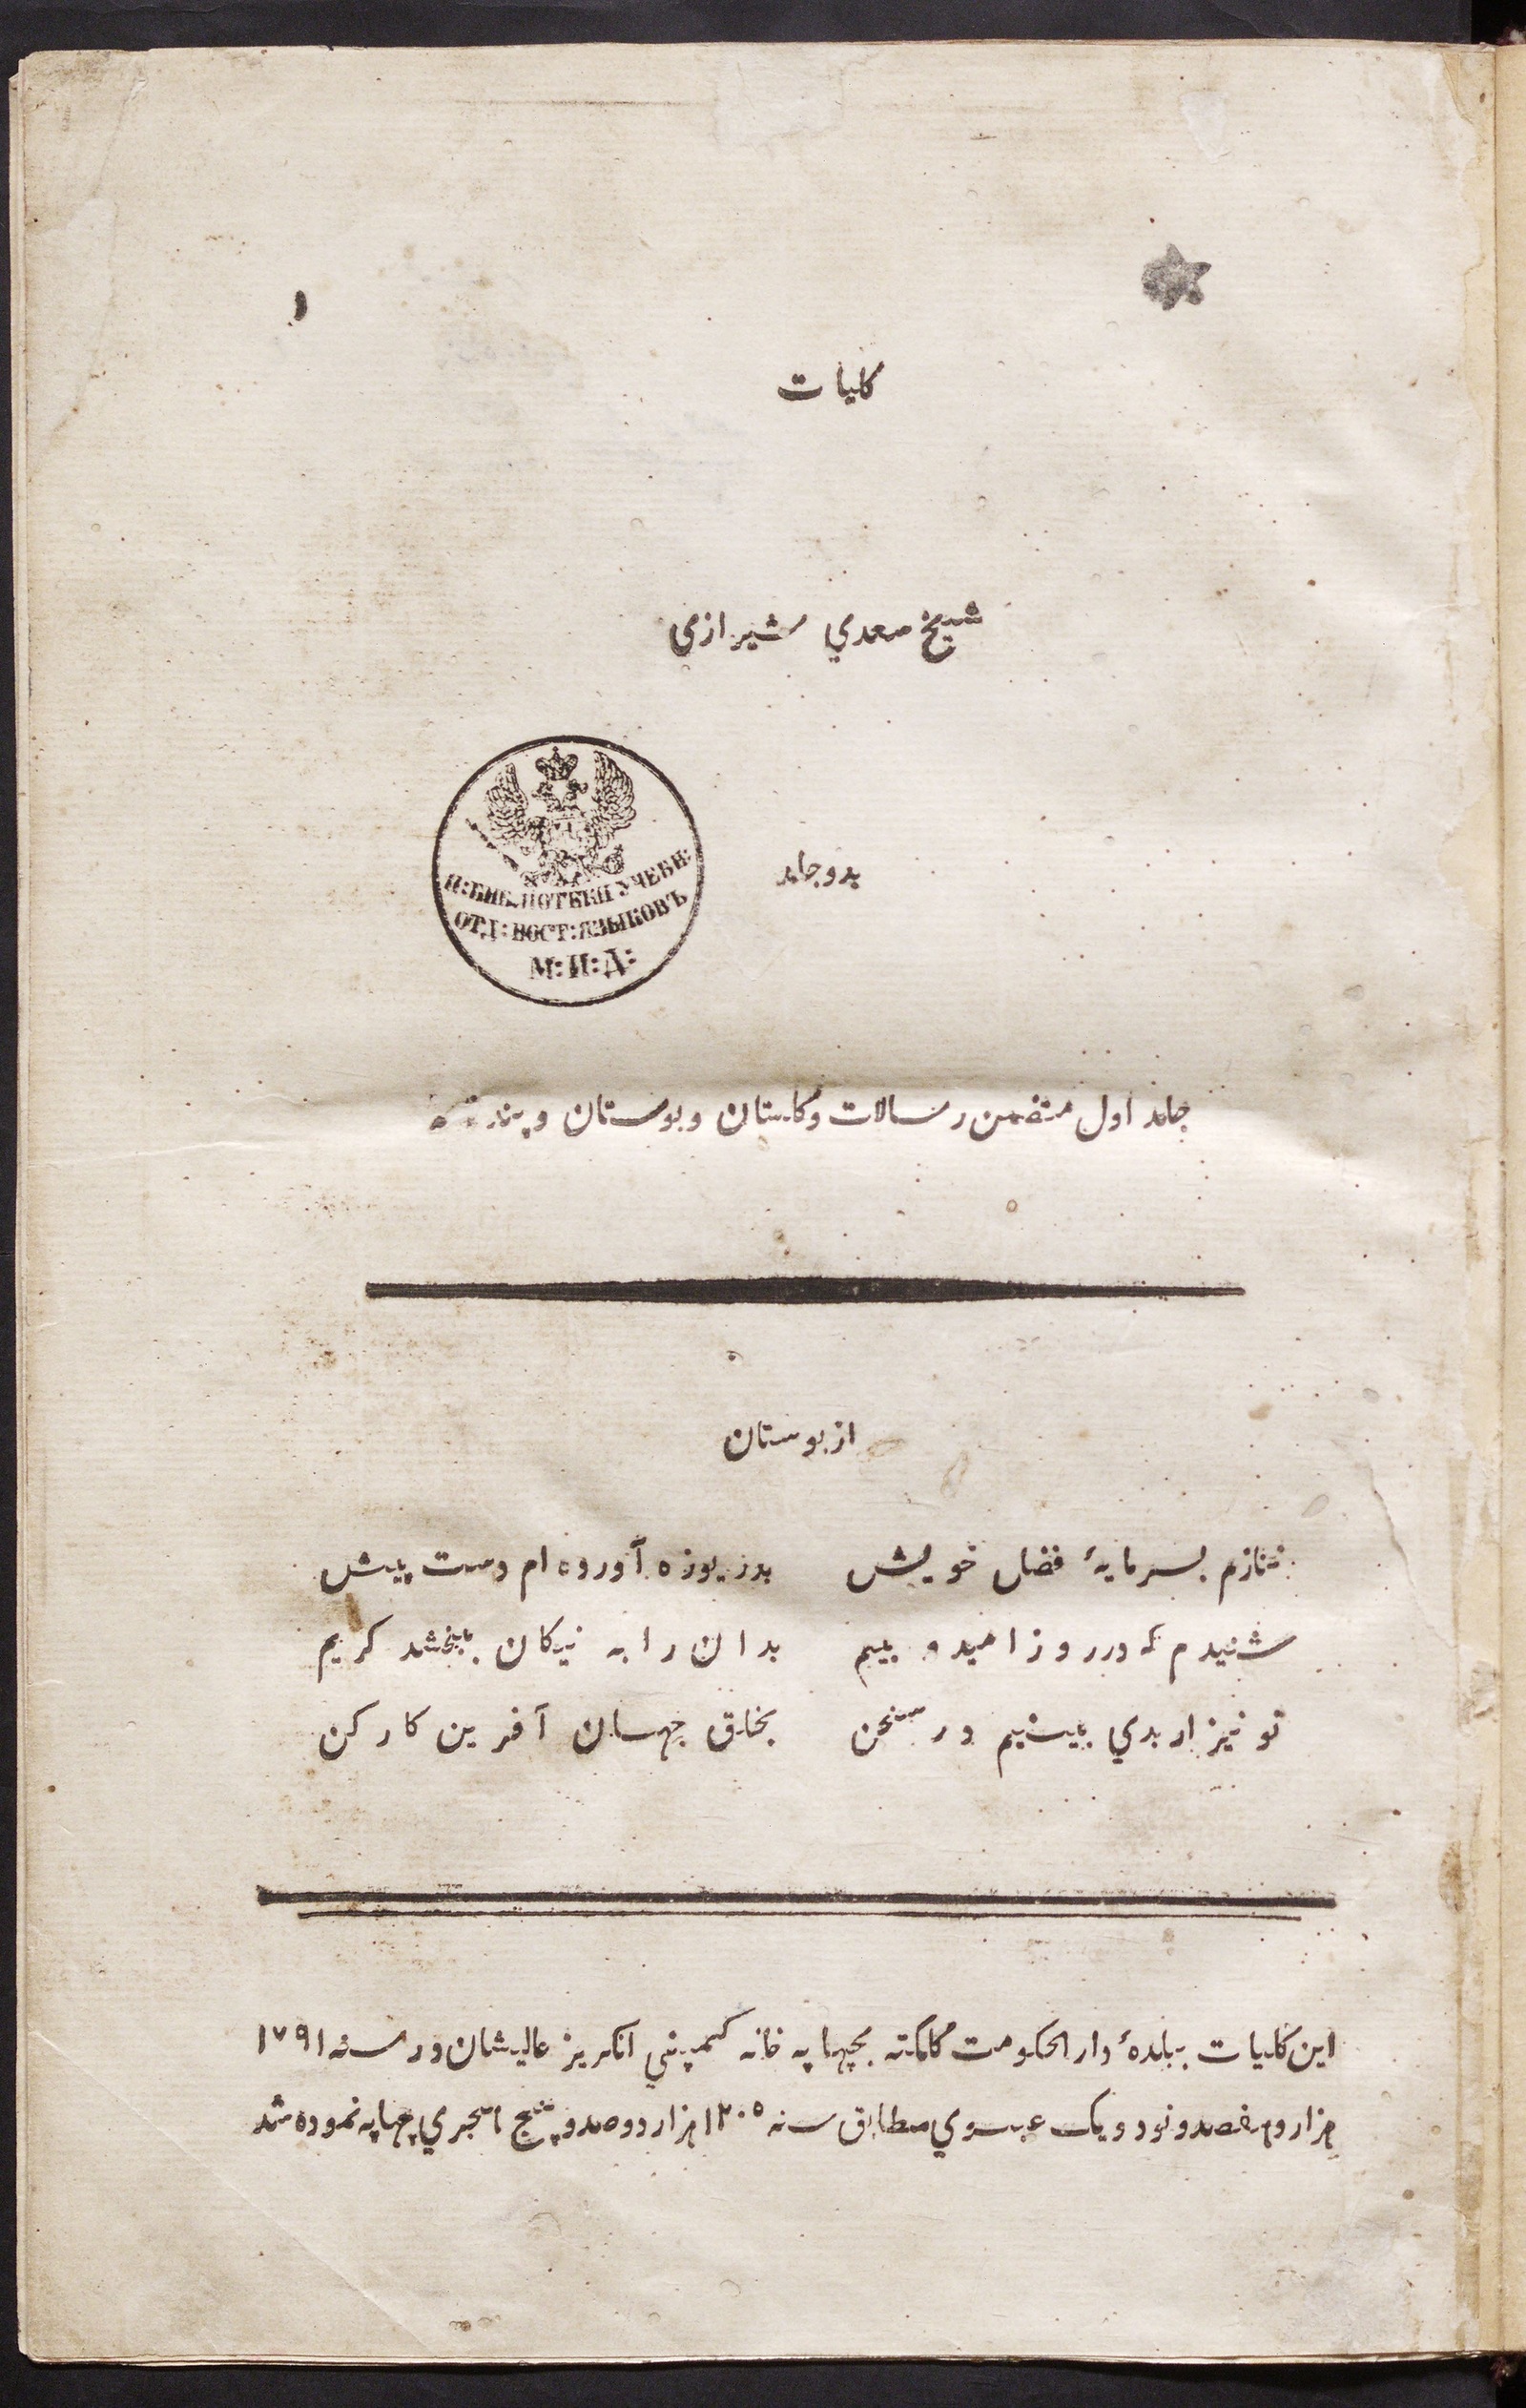 ۱
کلیات
شیخ سعدي شیرازي
بدو جلد
И:БИБЛІОТЕКИ УЧЕБН:
ОТД:ВОСТ:ЯЗЫКОВЪ
М:И:Д:
جلد اول متضمن رسالات و کلستان و بوستان و
از بوستان
ننازم بسرمایهٔ فضل خویش بدریوزه آورده ام دست پیش
شنیدم که در روز امید و بیم بدان را به نیکان ببخشد کریم
تو نیز ار بدي بینیم در سخن بخلق جهان آفرین کار کن
این کلیات ببلدهٔ دار الحکومت کلکته بچهاپه خانه کمپني انکریز عالیشان در سنه ۱۷۹۱
هزار و هفصد و نود و یک عیسوي مطابق سنه ۱۲۰۵ هزار دو صد و پنج هجري چهاپه نموده شد